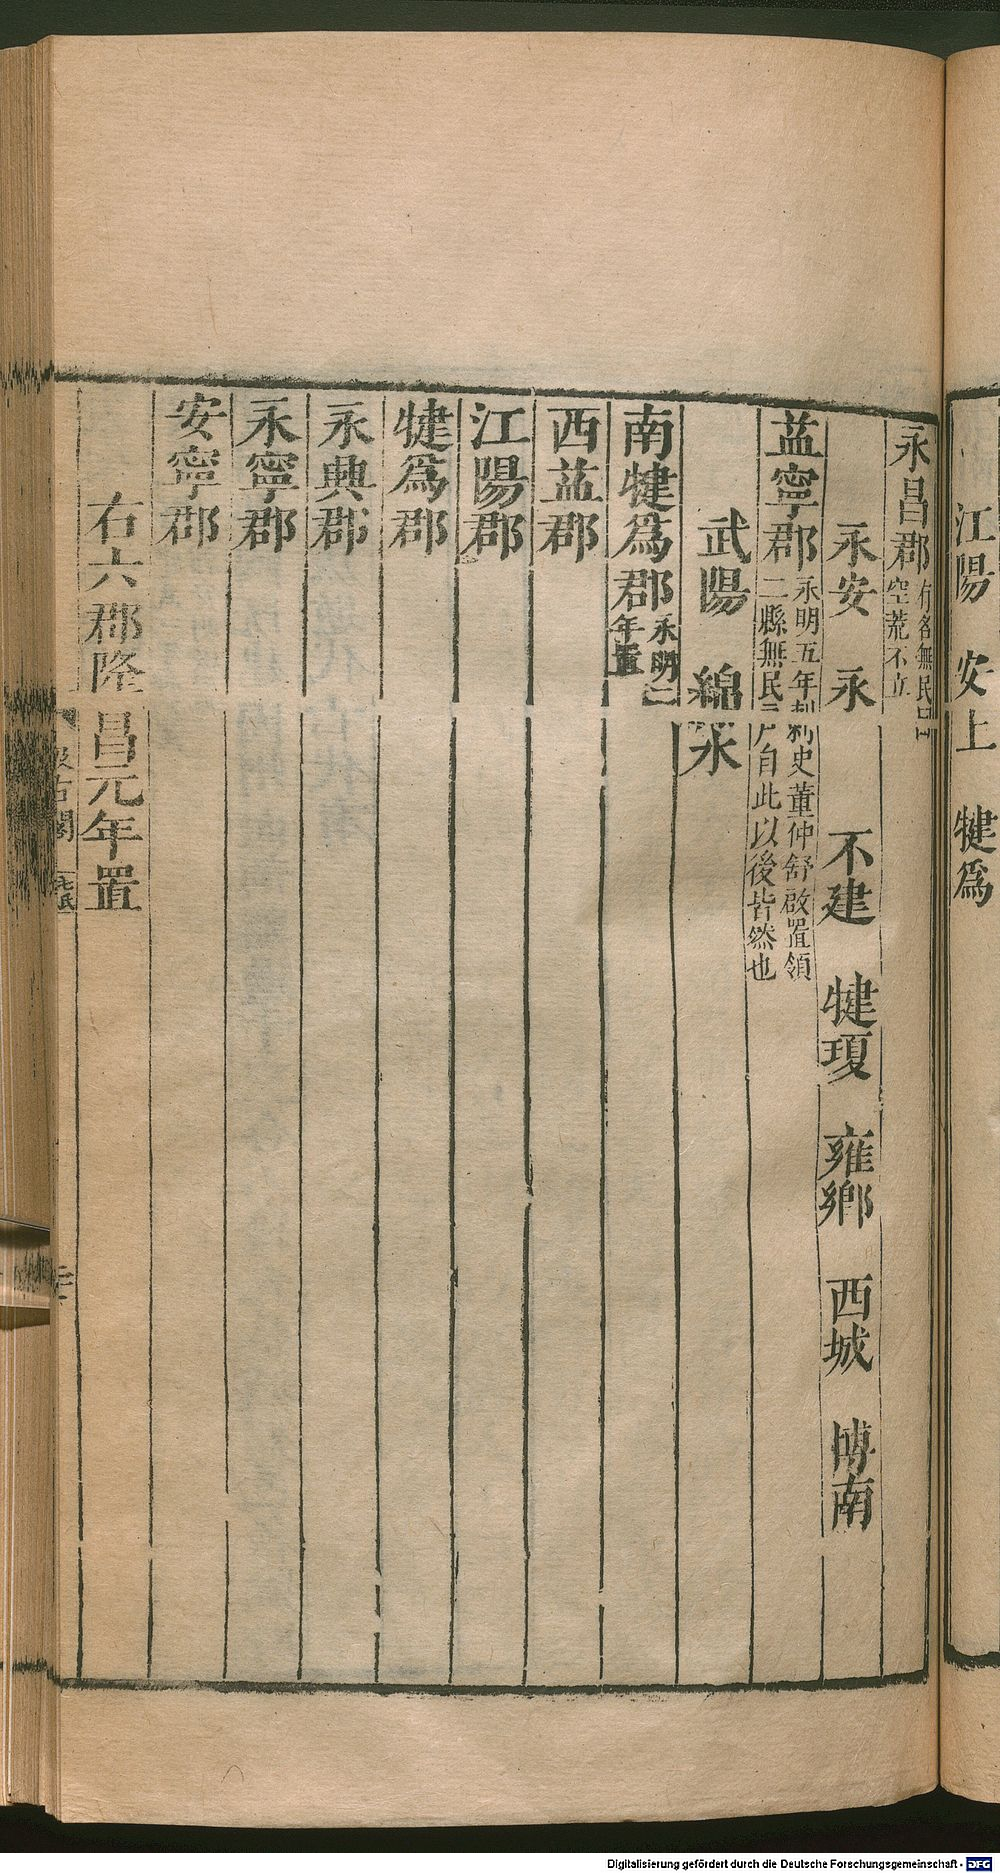 江陽　安上　犍爲
永昌郡有名無民曰空荒不立
永安　永　不建　犍瓊　雍鄉　西城　博南
益寧郡永明五年刺史董仲舒啟置領二縣無民戶自此以後皆然也
武陽　綿水
南犍爲郡永明二年置
西益郡
江陽郡
犍爲郡
永興郡
永寧郡
安寧郡
右六郡隆昌元年置
汲古閣
毛氏
Digitalisierung gefördert durch die Deutsche Forschungsgemeinschaft - DFG